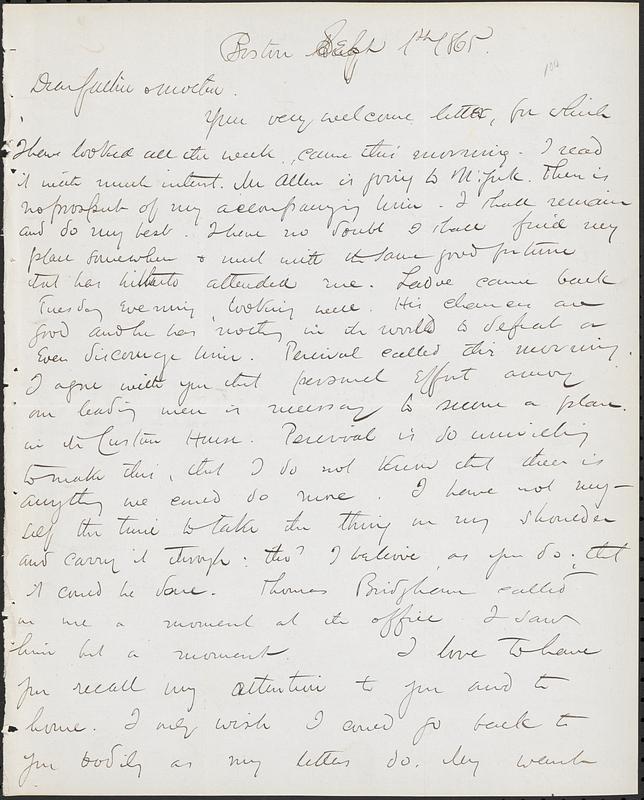 Boston Sept 1st 1865.
Dear father & mother.
Your very welcome letter, for which
I have looked all the week, came this morning. I read
it with much interest. Mr Allen is going to N. York. There is
no prospect of my accompanying him. I shall remain
and do my best. I have no doubt I shall find my
place somewhere & meet with the same good fortune
that has hitherto attended me. came back
Tuesday Evening, looking well. His chances are
good and he has nothing in the world to defeat or
Even discourage him. Percival called this morning.
I agree with you that personal Effort among
our leading men is necessary to secure a place
in the Custom House. Percival is so unwilling
to make this, that I do not know that there is
anything we could do more. I have not my-
self the time to take the thing on my shoulder
and carry it through: tho' I believe, as you do, that
it could be done. Thomas Bridgham called
on me a moment at the office. I saw
him but a moment. I love to have
you recall my attention to you and to
home. I only wish I could go back to
you bodily as my letters do. My work